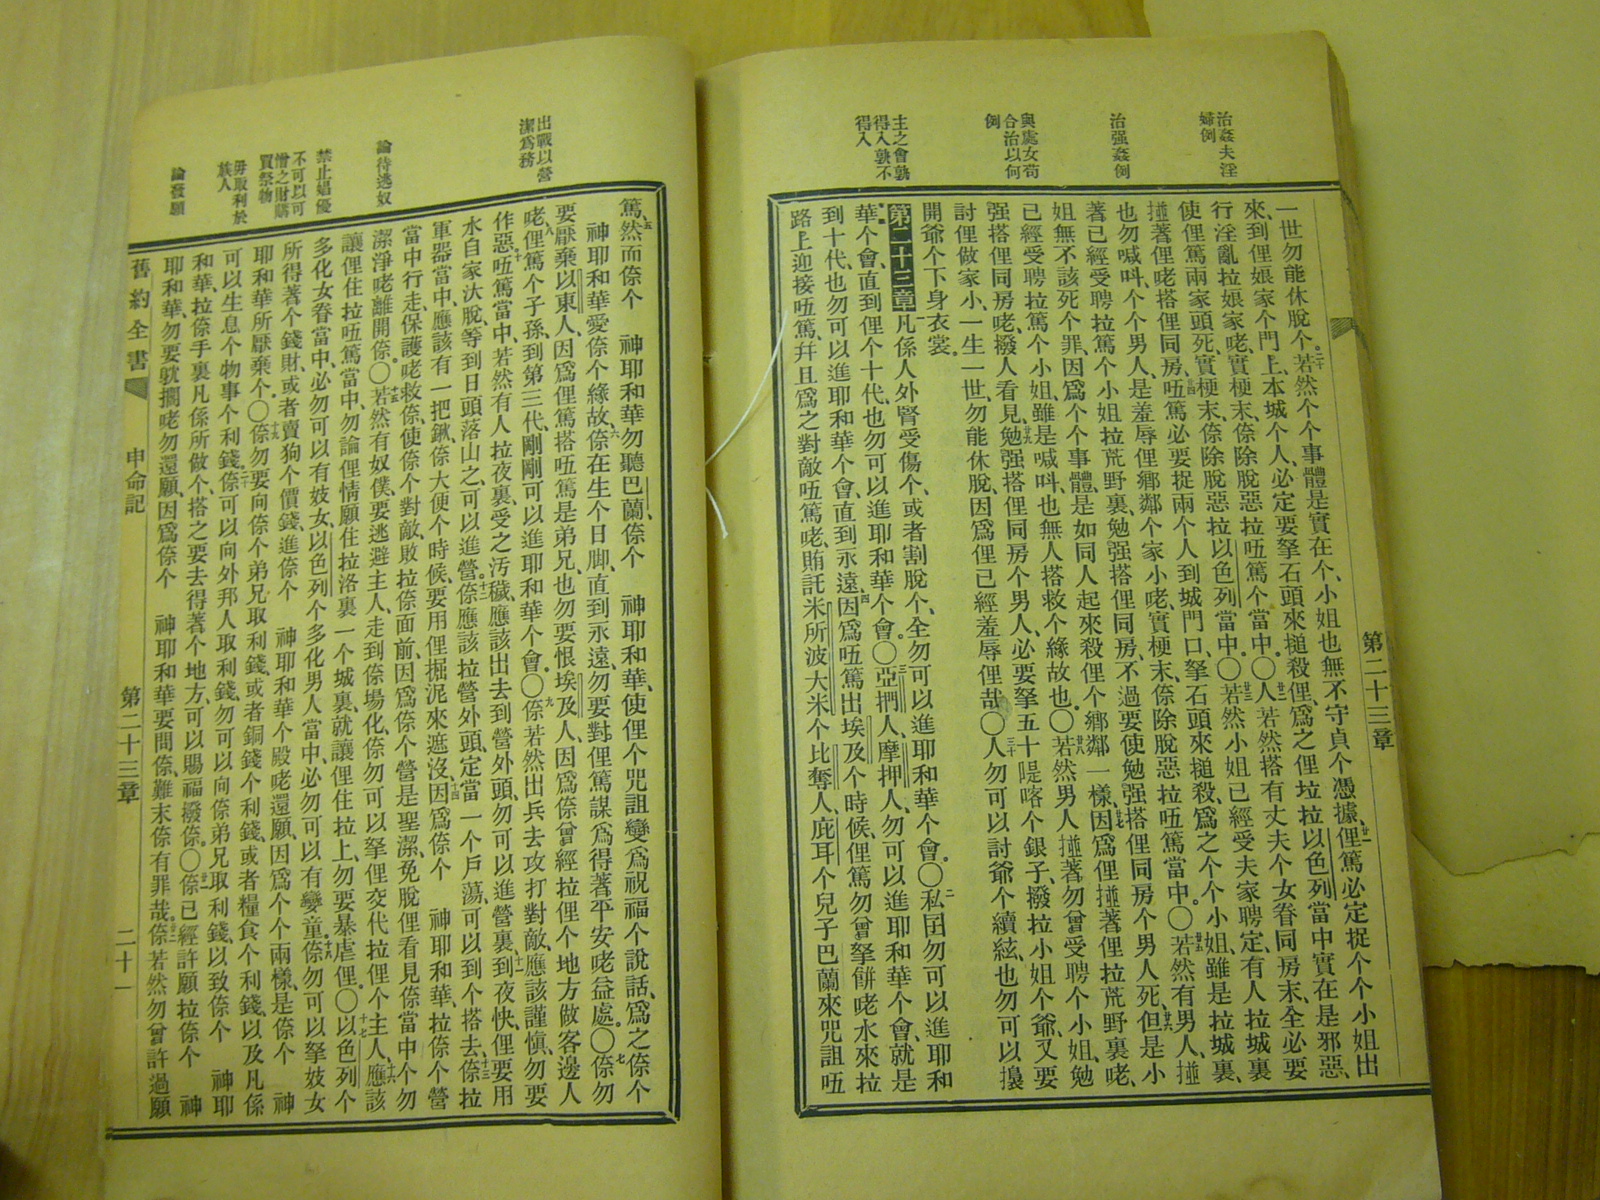 治姦夫淫
婦例
治强姦例
與處女苟
合治以何
例
主之會孰
得入孰不
得入
第二十三章
一世勿能休脫个。若然个个事體是實在个、小姐也無不守貞个憑據、俚篤必定捉个个小姐出
來、到俚娘家个門上、本城个人、必定要拏石頭來搥殺俚、爲之俚垃拉以色列當中實在是邪惡、
行淫亂拉娘家咾、實梗末、倷除脫惡拉唔篤个當中。〇人若然搭有丈夫个女眷同房末、全必要
使俚篤兩家頭死、實梗末、倷除脫惡拉以色列當中。〇若然小姐已經受夫家聘定、有人拉城裏、
搕著俚咾搭俚同房、唔篤必要捉兩个人到城門口、拏石頭來搥殺、爲之个个小姐、雖是拉城裏、
也勿喊呌、个个男人、是羞辱俚鄉鄰个家小咾、實梗末、倷除脫惡拉唔篤當中。〇若然有男人、搕
著已經受聘拉篤个小姐拉荒野裏、勉强搭俚同房、不過要使勉强搭俚同房个男人死、但是小
姐無不該死个罪、因爲个个事體、是如同人起來殺俚个鄉鄰一樣、因爲俚搕著俚拉荒野裏咾、
已經受聘拉篤个小姐、雖是喊呌、也無人搭救个緣故也。〇若然男人搕著勿曾受聘个小姐、勉
强搭俚同房咾、撥人看見、勉强搭俚同房个男人、必要拏五十㖷喀个銀子、撥拉小姐个爺、又要
討俚做家小、一生一世、勿能休脫、因爲俚已經羞辱俚哉〇人勿可以討爺个續絃、也勿可以揭
開爺个下身衣裳。
第二十三章凡係人外腎受傷个、或者割脫个、全勿可以進耶和華个會。〇私囝勿可以進耶和
華个會、直到俚个十代、也勿可以進耶和華个會。〇亞捫人、摩押人、勿可以進耶和華个會、就是
到十代、也勿可以進耶和華个會、直到永遠、因爲唔篤出埃及个時候、俚篤勿曾拏餠咾水來拉
路上迎接唔篤、幷且爲之對敵唔篤咾、賄託米所波大米个比奪人、庇耳个兒子巴蘭來咒詛唔
出戰以營
潔爲務
論待逃奴
禁止娼優
不可以可
憎之財購
買祭物
毋取利於
族人
論發願
篤、然而倷个　神耶和華勿聽巴蘭、倷个　神耶和華、使俚个咒詛變爲祝福个說話、爲之倷个
　神耶和華愛倷个緣故、倷在生个日脚、直到永遠、勿要對俚篤謀爲得著平安咾益處。〇倷勿
要厭棄以東人、因爲俚篤搭唔篤是弟兄、也勿要恨埃及人、因爲倷曾經拉俚个地方做客邊人
咾、俚篤个子孫、到第三代剛剛可以進耶和華个會〇倷若然出兵去攻打對敵、應該謹愼、勿要
作惡、唔篤當中、若然有人拉夜裏受之汚穢、應該出去到營外頭、勿可以進營裏、到夜快、俚要用
水自家汏脫、等到日頭落山之、可以進營。倷應該拉營外頭、定當一个戶蕩、可以到个搭去、倷拉
軍器當中、應該有一把鍬、倷大便个時候、要用俚掘泥來遮沒、因爲倷个　神耶和華、拉倷个營
當中行走、保護咾救倷、使倷个對敵、敗拉倷面前、因爲倷个營是聖潔、免脫俚看見倷當中个勿
潔淨咾離開倷。〇若然有奴僕、要逃避主人、走到倷場化、倷勿可以拏俚交代拉俚个主人、應該
讓俚住拉唔篤當中、勿論俚情願住拉洛裏一个城裏、就讓俚住拉上、勿要暴虐俚。〇以色列个
多化女眷當中、必勿可以有妓女、以色列个多化男人當中、必勿可以有孌童。倷勿可以拏妓女
所得著个錢財、或者賣狗个價錢、進倷个　神耶和華个殿咾還願、因爲个个兩樣、是倷个　神
耶和華所厭棄个。〇倷勿要向倷个弟兄取利錢、或者銅錢个利錢、或者糧食个利錢、以及凡係
可以生息个物事个利錢、倷可以向外邦人取利錢、勿可以向倷弟兄取利錢、以致倷个　神耶
和華、拉倷手裏凡係所做个、搭之要去得著个地方、可以賜福撥倷。〇倷已經許願拉倷个　神
耶和華、勿要躭擱咾勿還願、因爲倷个　神耶和華要問倷、難末倷有罪哉。倷若然勿曾許過願
舊約全書　申命記　第二十三章　二十一